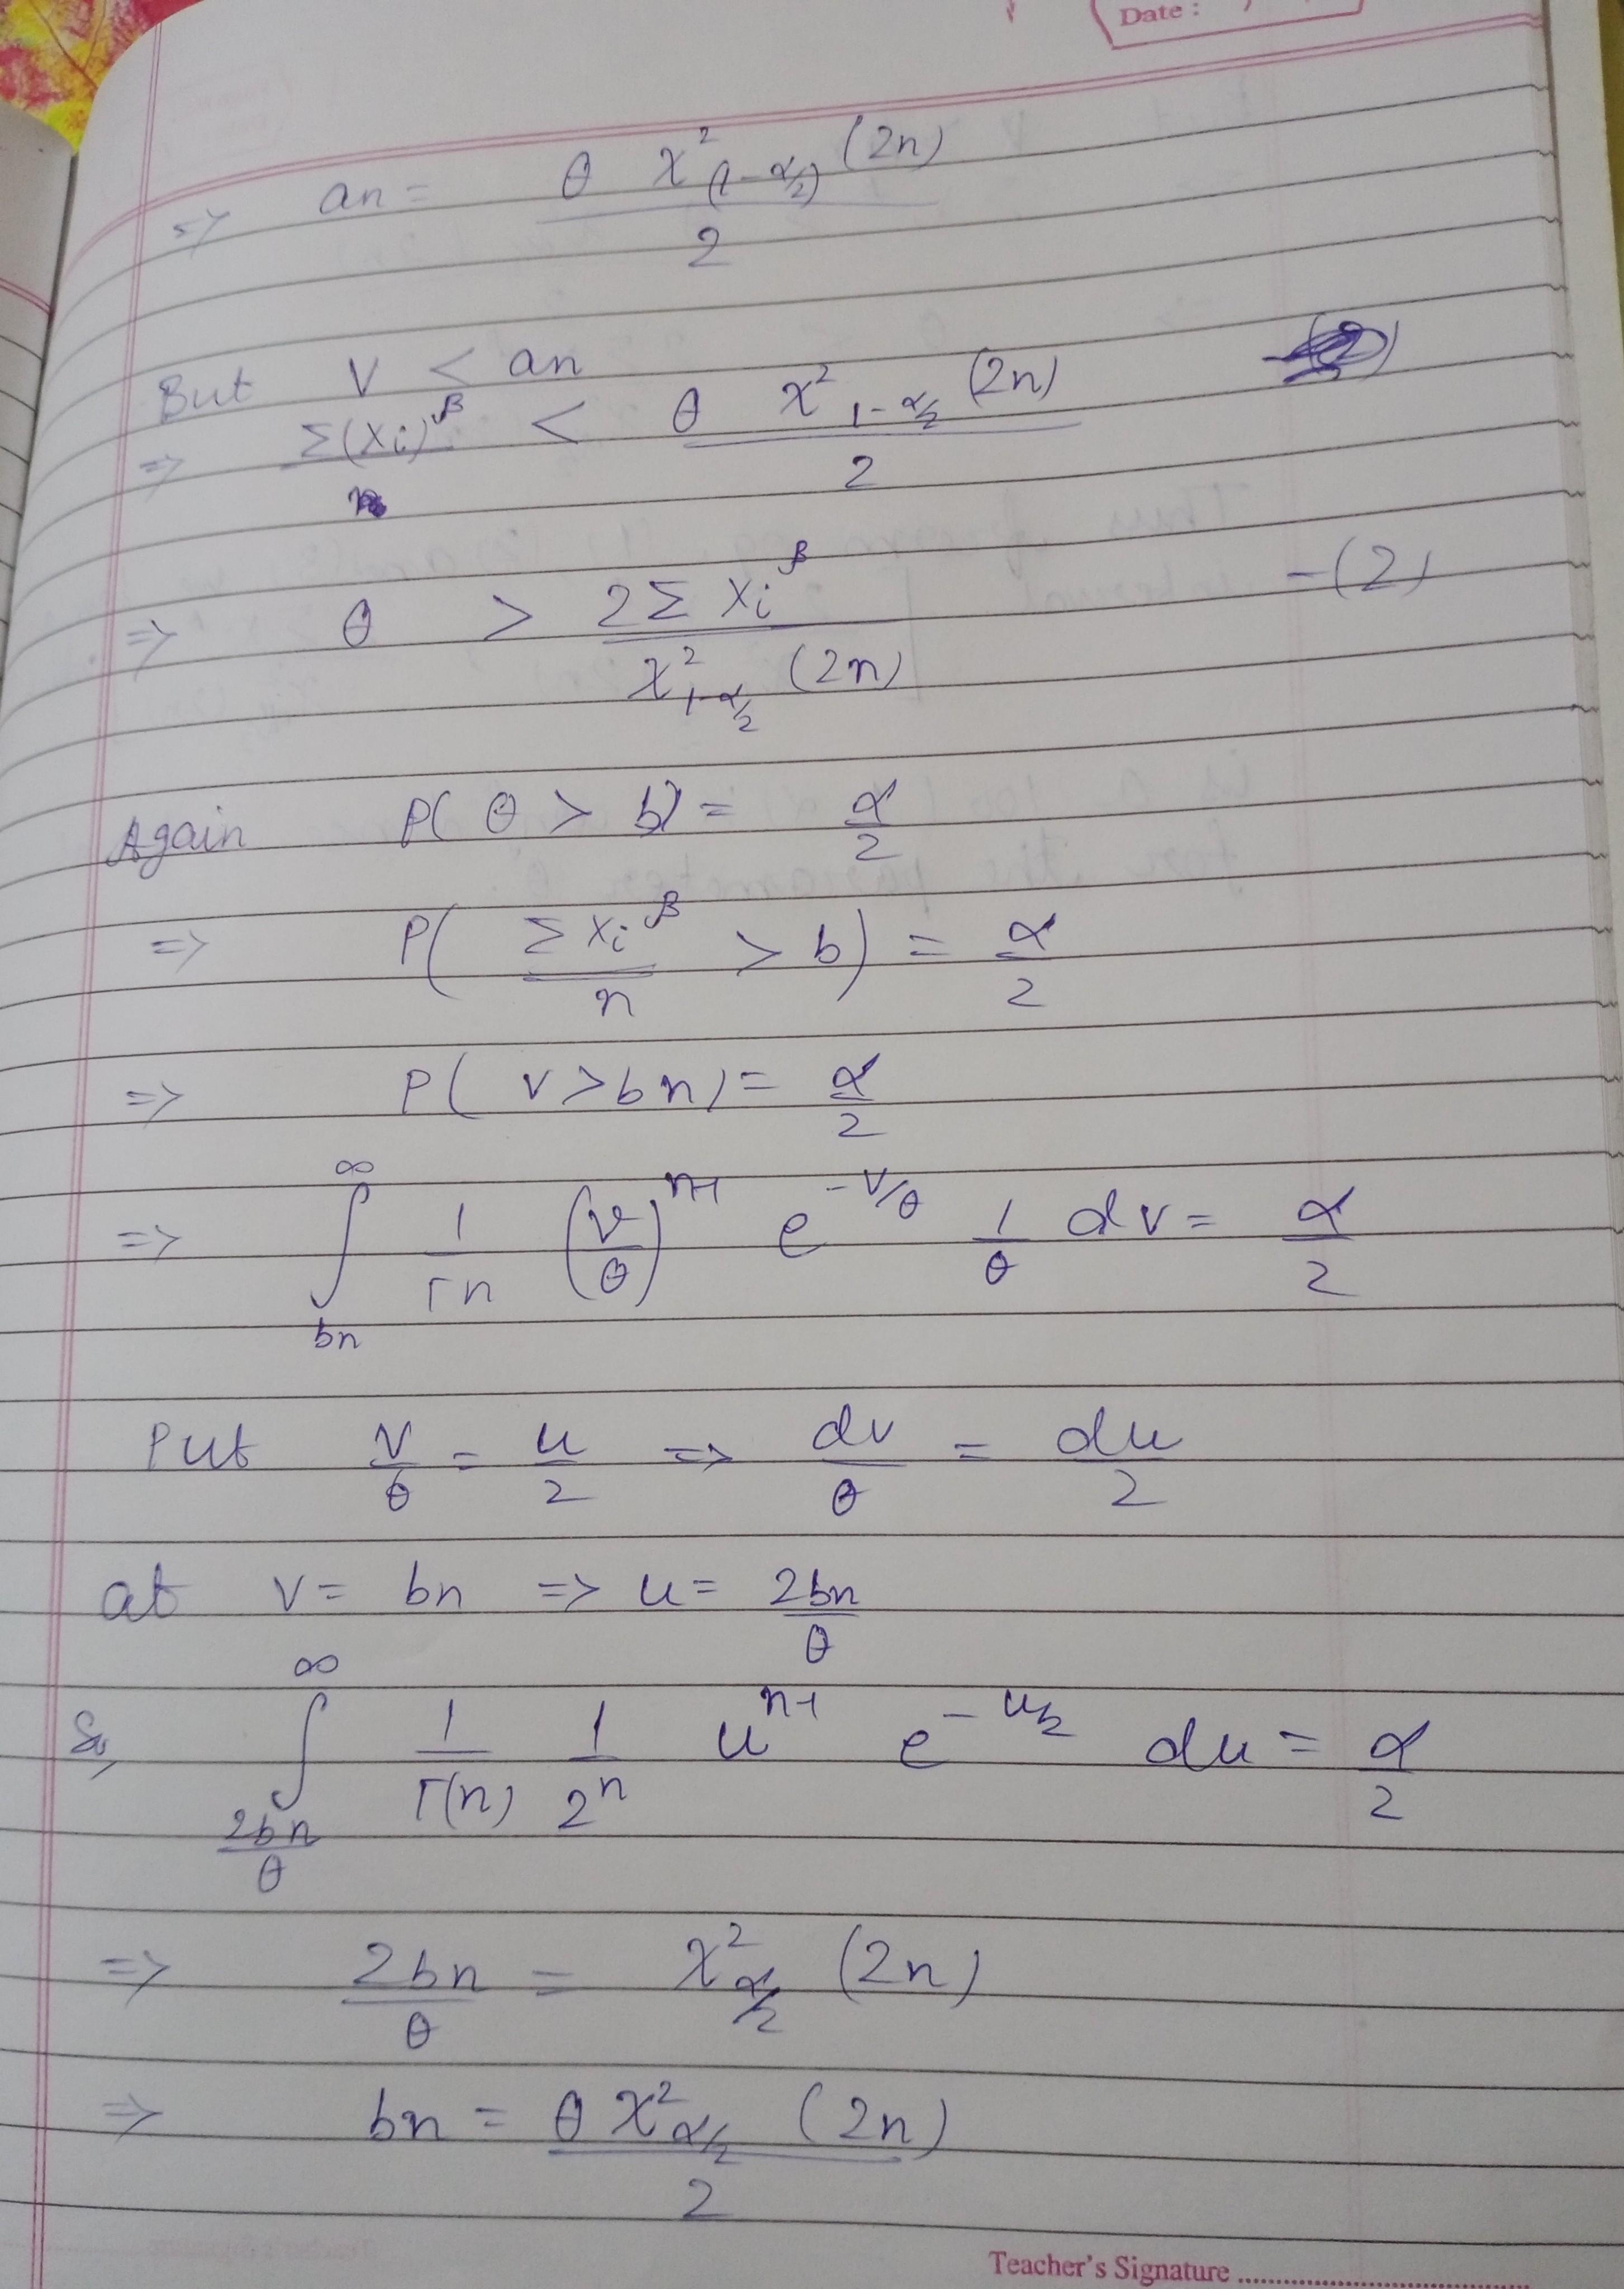 Date :
=> an = θ χ²(1-α/2) (2n) / 2
But V < an
=> Σ(Xi)^β < θ χ²1-α/2 (2n) / 2
=> θ > 2Σ Xi^β / χ²1-α/2 (2n) -(2)
Again P( θ > b) = α/2
=> P( Σ Xi^β / n > b) = α/2
=> P( v > bn) = α/2
=> ∫_bn^∞ 1/Γn (v/θ)^n-1 e^-v/θ 1/θ dv = α/2
Put v/θ = u/2 => dv/θ = du/2
at v = bn => u = 2bn/θ
So, ∫_2bn/θ^∞ 1/Γ(n) 1/2^n u^n-1 e^-u/2 du = α/2
=> 2bn/θ = χ²α/2 (2n)
=> bn = θ χ²α/2 (2n) / 2
Teacher's Signature